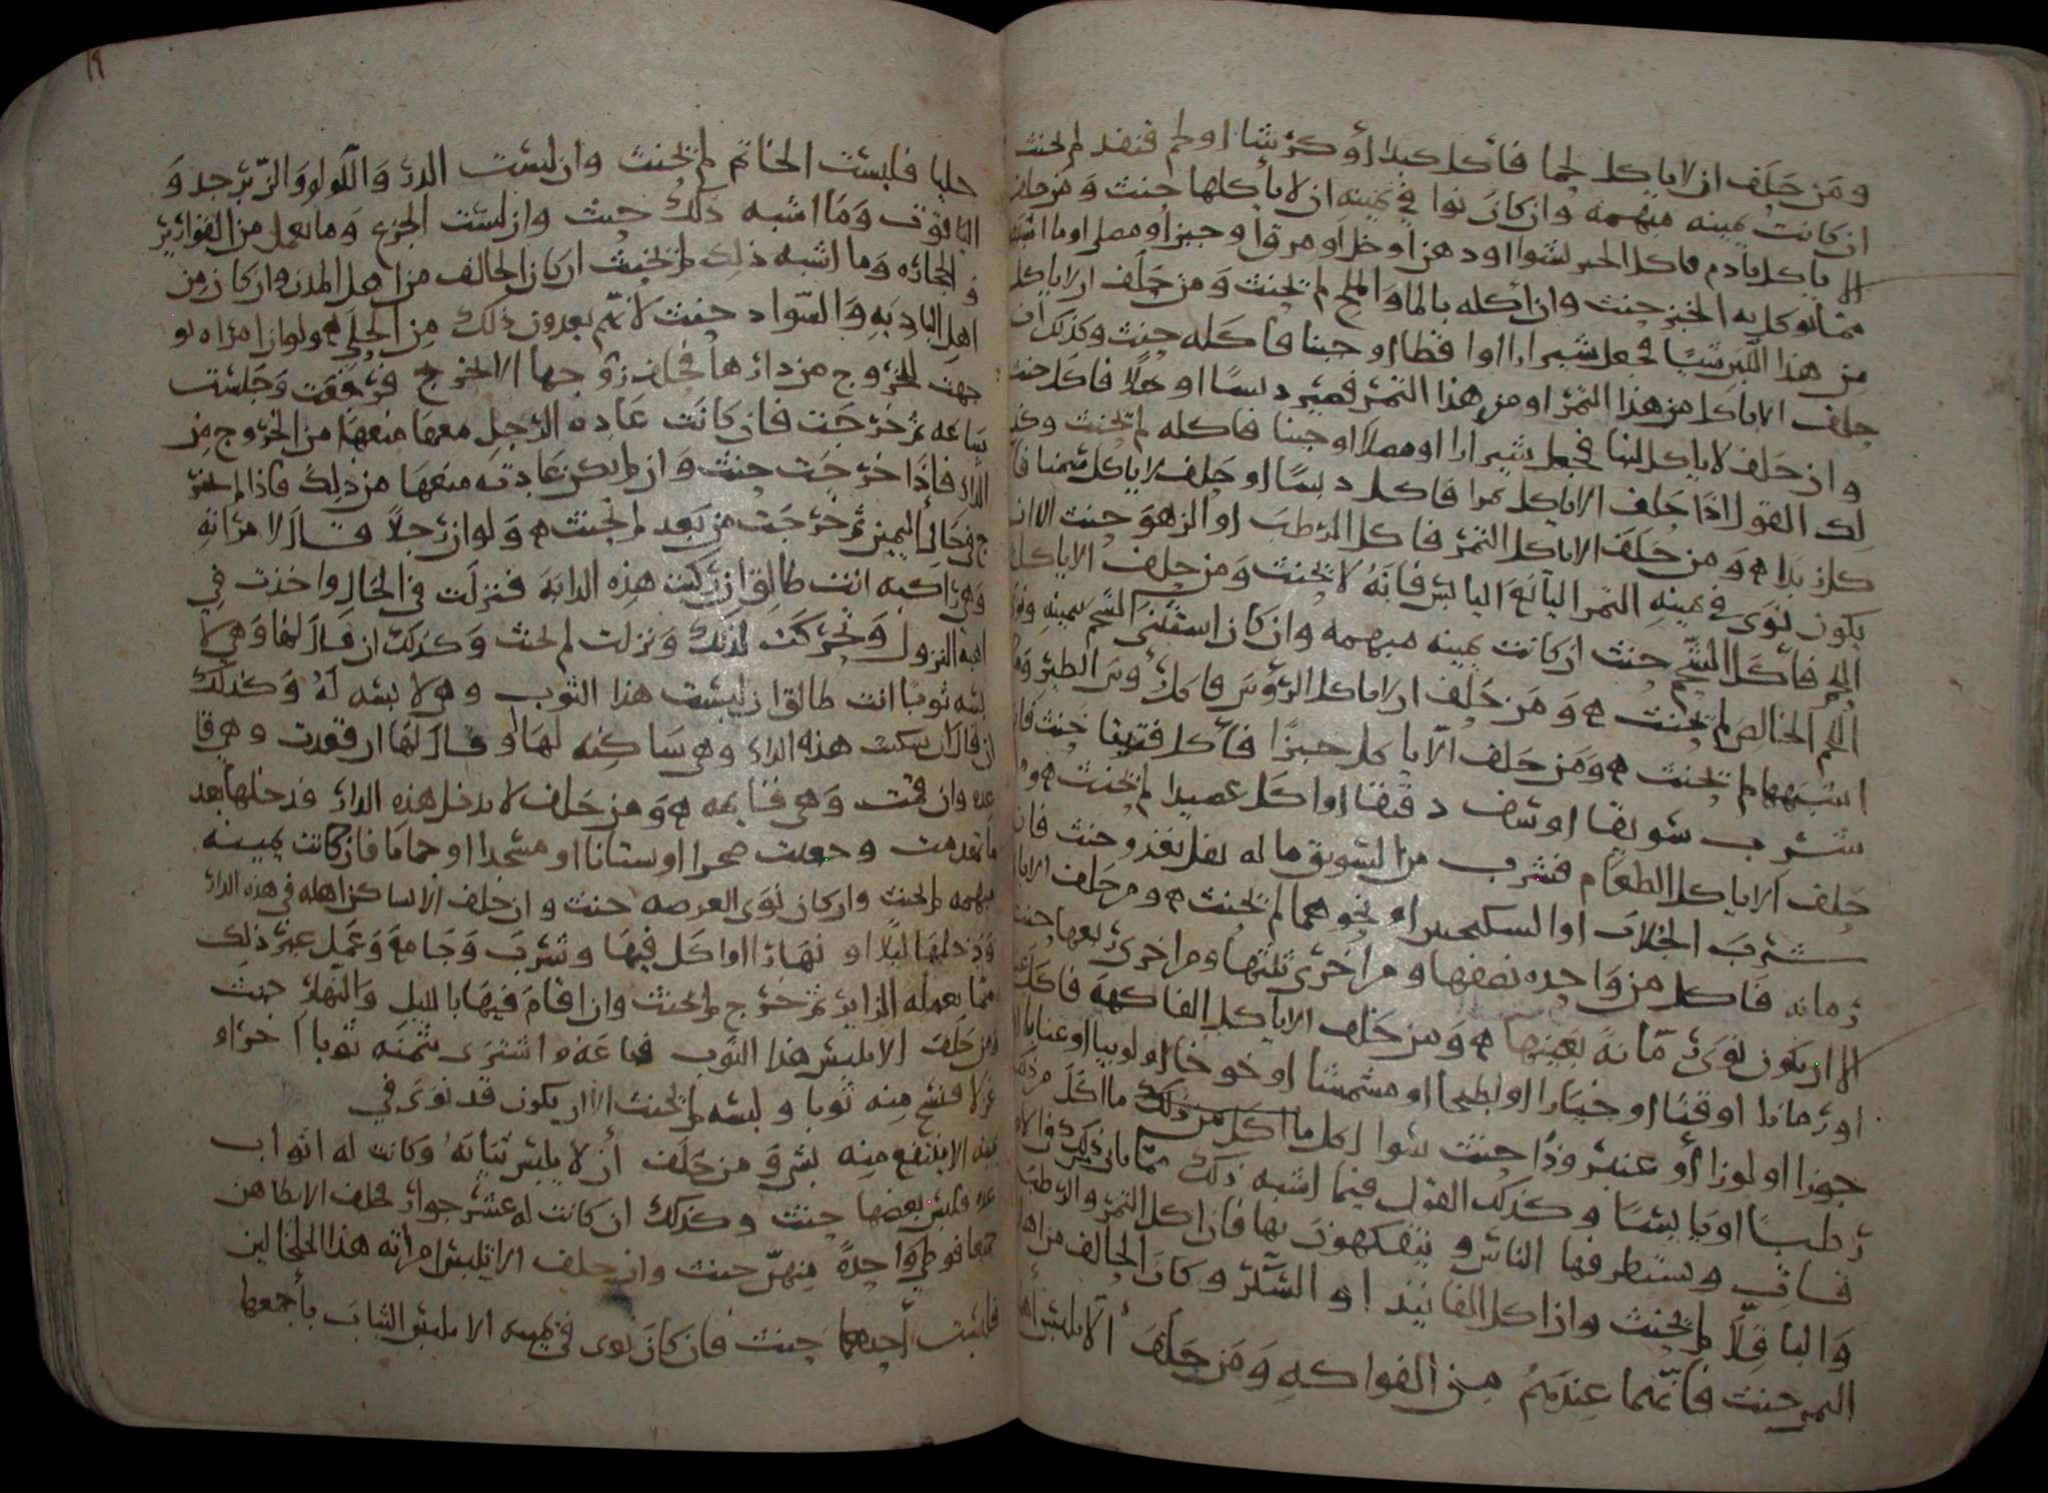 ومن حلف ان لا ياكل لحما فأكل كبدا أو كرشا او لحم قنفد لم يحنث
ان كانت يمينه مبهمه وان كان نوا في يمينه ان لا يأكلها حنث ومن حلف
الا ياكل بأدم فاكل الخبز بشوا او دهن او خل او مرق او جبن او مصل او ما اشبه
مما يوكل به الخبز حنث وان أكله بالما والملح لم يحنث ومن حلف ان لا ياكل
من هذا اللبن شيا فجعل شيرازا او اقطا او جبنا فاكله حنث وكذلك ان
حلف الا ياكل من هذا التمر او من هذا التمر فصير دبسا او خلا فاكل حنث
وان حلف لا ياكل لبنا فجعل شيرازا او مصلا او جبنا فاكله لم يحنث وكذ
لك القول اذا حلف الا ياكل تمرا فاكل دبسا او حلف لا ياكل سمنا فا
كل زبدا ه ومن حلف الا ياكل التمر فاكل الرطب او الزهو حنث الا ان
يكون نوى في يمينه التمر اليانع اليابس فانه لا يحنث ومن حلف الا ياكل
اللحم فأكل الشحم حنث ان كانت يمينه مبهمه وان كان استثنى الشحم بيمينه ونوى
اللحم الخالص لم يحنث ه ومن حلف ان لا ياكل الرؤس فاكل رؤس الطير وما
اشبهها لم يحنث ه ومن حلف الا ياكل خبزا فأكل فتيتا حنث فان
شرب سويقا او سف دقيقا او اكل عصيدا لم يحنث ه ومن
حلف الا ياكل الطعام فشرب من السويق ما له نفل نفذ وحنث فان
شرب الجلاب او السكنجبين او نحوهما لم يحنث ه ومن حلف الا ياكل
رمانه فاكل من واحده نصفها ومن اخرى ثلثها ومن اخرى ربعها حنث
الا ان يكون نوى رمانة بعينها ه ومن حلف الا ياكل الفاكهة فاكل
او رمانا او قثا او خيارا او بطيخا او مشمشا او خوخا او لوبيا او عنابا
جوزا او لوزا أو عنبرودا حنث سوا اكل ما اكل من ذلك ما اكل من ذلك
رطبا او يابسا وكذلك القول فيما اشبه ذلك مما يا
فاق ويستطرفها الناس ويتفكهون بها فان اكل التمر والرطب
والباقلا لم يحنث وان اكل الفانيذ او السكر وكان الحالف من اهل
التمر حنث فانهما عندهم من الفواكه ومن حلف ألا يلبس امرأته
١٩
حليا فلبست الخاتم لم يحنث وان لبست الدر واللولو والزبرجد و
الياقوت وما اشبه ذلك حنث وان لبست الجزع وما يعمل من القوارير
والحجاره وما اشبه ذلك لم يحنث ان كان الحالف من اهل المدن وان كان من
اهل الباديه والسواد حنث لانهم يعدون ذلك من الحلي ه ولو ان امراه نو
جهت للخروج من دارها فحلف زوجها الا تخرج فرجعت وجلست
ساعه ثم خرجت فان كانت عاده الرجل معها منعها من الخروج من
الدار فاذا خرجت حنث وان لم يكن عادته منعها من ذلك فاذا لم تخر
ج في حال اليمين ثم خرجت من بعد لم يحنث ه ولو ان رجلا قال لامراته
وهي راكبه انت طالق ان ركبت هذه الدابة فنزلت في الحال واخذت في
اهبة النزول وتحركت لذلك ونزلت لم يحنث وكذلك ان قال لها وهي لا
بسه ثوبا انت طالق ان لبست هذا الثوب وهي لابسه له وكذلك
ان قال ان سكنت هذه الدار وهي ساكنه لها او قال لها ان قعدت وهي قا
عده وان قمت وهي قايمه ه ومن حلف لا يدخل هذه الدار فدخلها بعد
ما تهدمت وجعلت صحرا او بستانا او مسجدا او حماما فان كانت يمينه
مبهمه لم يحنث وان كان نوى العرصه حنث وان حلف ألا يساكن اهله في هذه الدار
فدخلها ليلا او نهارا او اكل فيها وشرب وجامع وعمل غير ذلك
مما يعمله الزاير ثم خرج لم يحنث وان اقام فيها بالليل والنهار حنث
ومن حلف الا يلبس هذا الثوب فباعه واشترى بثمنه ثوبا اخر او
غزلا فنسج منه ثوبا ولبسه لم يحنث الا ان يكون قد نوى في
يمينه الا ينتفع منه بشي ومن حلف أن لا يلبس ثيابه وكانت له اثواب
عده فلبس بعضها حنث وكذلك ان كانت له عشر جوار فحلف الا يطاهن
جميعا فوطي واحدة منهن حنث وان حلف الا يلبس امراته هذا الخلخالين
فلبست أحدهما حنث فان كان نوى في يمينه الا يلبس الثياب بأجمعها